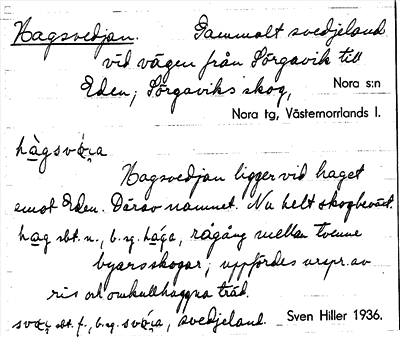 Hagsvedjan. Gammalt svedjeland
vid vägen från Sörgavik till
Eden; Sörgaviks skog,
Nora s:n
Nora tg, Västernorrlands l.
Hagsvedjan ligger vid haget
emot Eden. Därav namnet. Nu helt skogbeväxt.
hag obt. n., b. sg. håga, rågång mellan tvenne
byars skogar; uppfördes urspr. av
ris och omkullhuggna träd.
obt. f., b. sg. svedjeland.
Sven Hiller 1936.